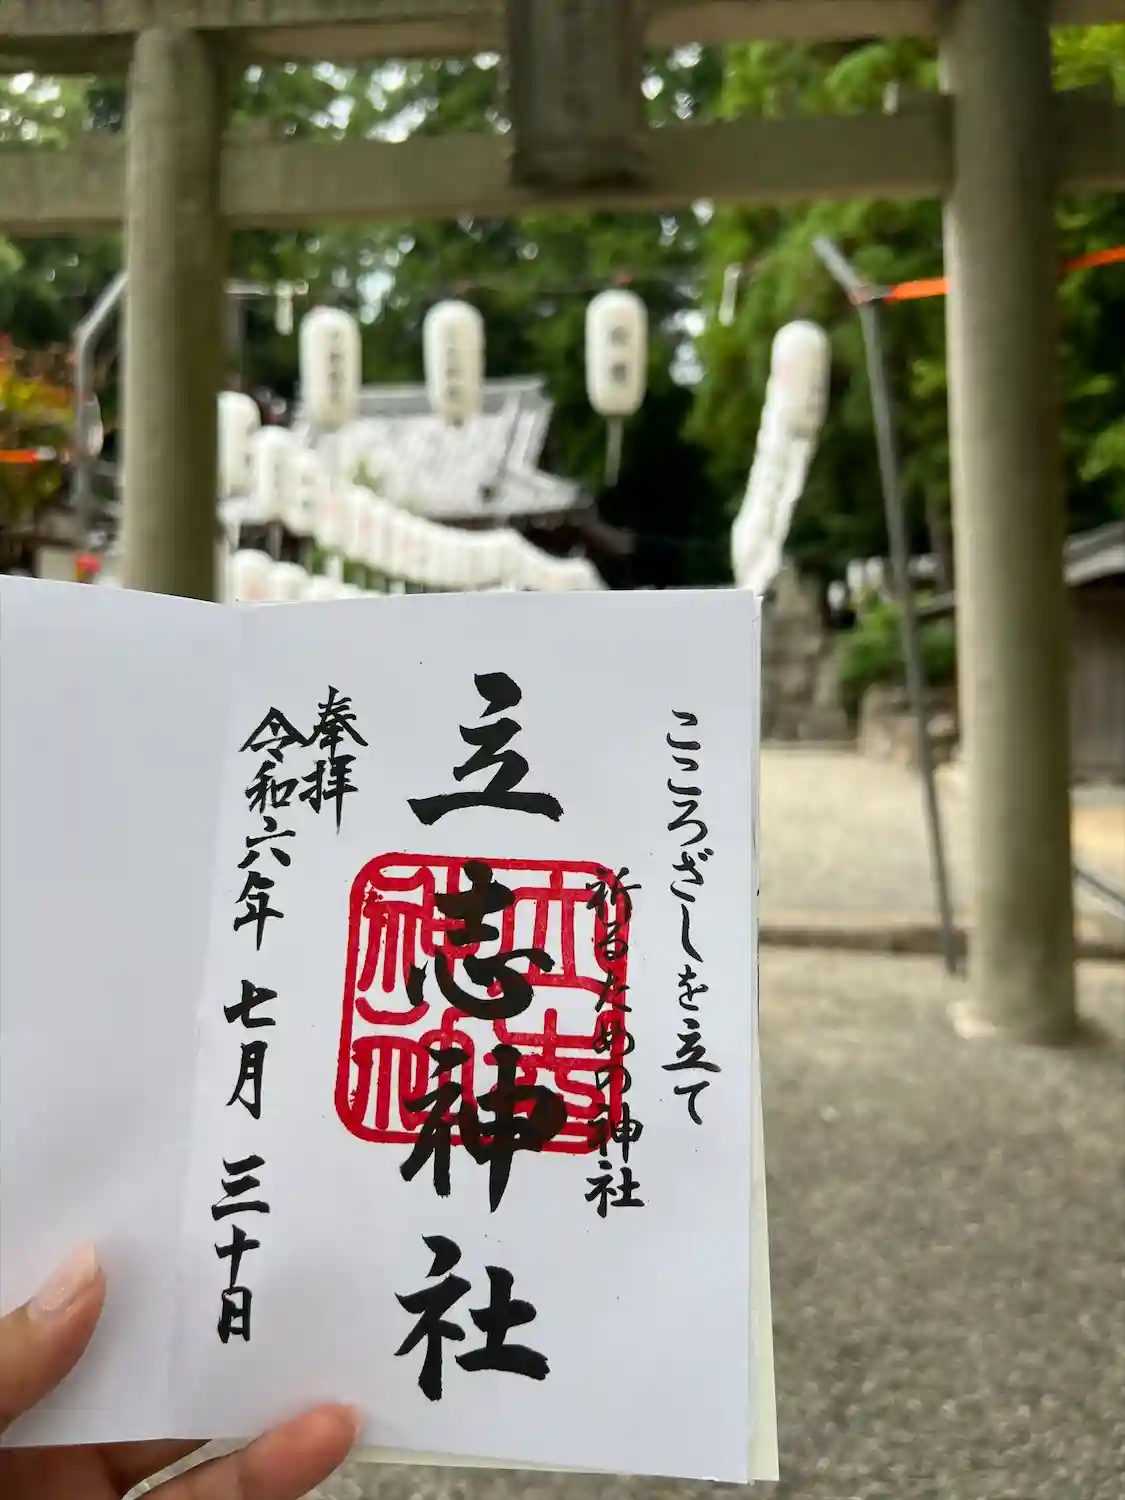 こころざしを立て
祈るための神社
立志神社
立志神社
奉拝
令和六年 七月 三十日